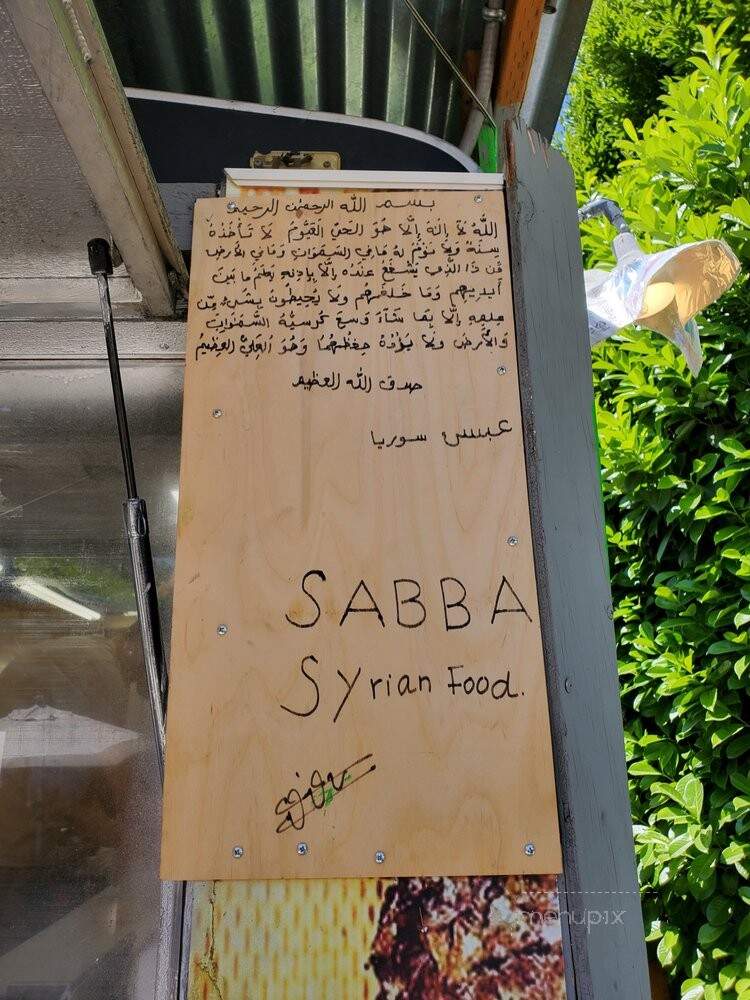 بسم الله الرحمٰن الرحيم
اللَّهُ لَا إِلَهَ إِلَّا هُوَ الْحَيُّ الْقَيُّومُ لَا تَأْخُذُهُ
سِنَةٌ وَلَا نَوْمٌ لَهُ مَا فِي السَّمَوَاتِ وَمَا فِي الْأَرْضِ
مَن ذَا الَّذِي يَشْفَعُ عِنْدَهُ إِلَّا بِإِذْنِهِ يَعْلَمُ مَا بَيْنَ
أَيْدِيهِم وَمَا خَلْفَهُم وَلَا يُحِيطُونَ بِشَيْءٍ مِّنْ
عِلْمِهِ إِلَّا بِمَا شَآءَ وَسِعَ كُرْسِيُّهُ السَّمَوَاتِ
وَالْأَرْضَ وَلَا يَؤُدُهُ حِفْظُهُمَا وَهُوَ الْعَلِيُّ الْعَظِيمُ
صدق الله العظيم
عبسي سوريا
SABBA
Syrian Food.
menupix